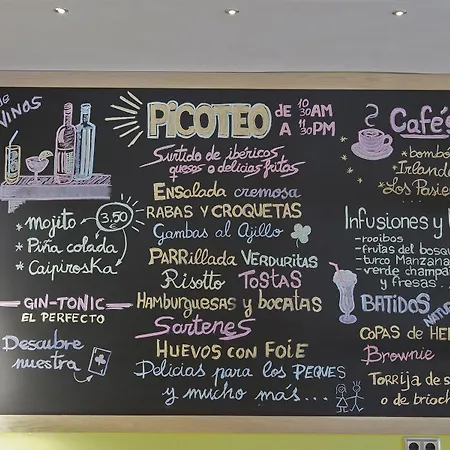 DE
VINOS
* mojito
3,50
* Piña colada
* Caipiroska
GIN-TONIC
EL PERFECTO
Descubre
nuestra
PICOTEO DE 10:30 AM
A 11:30 PM
Surtido de ibéricos
quesos o delicias fritas
ENsalada cremosa
RABAS Y CROQUETAS
Gambas al Ajillo
PARRillada VERDURITAS
Risotto TOSTAS
Hamburguesas y bocatas
Sartenes
HUEVOS CON FOIE
Delicias para los PEQUES
y mucho más...
Cafés
* bombó
Irlande
* Los Pasie
Infusiones y
- rooibos
- frutas del bosq
- turco Manzana
- verde champa
y fresas...
BATIDOS
NATU
COPAS DE HE
Brownie
TORRIJA DE S
O de brioch